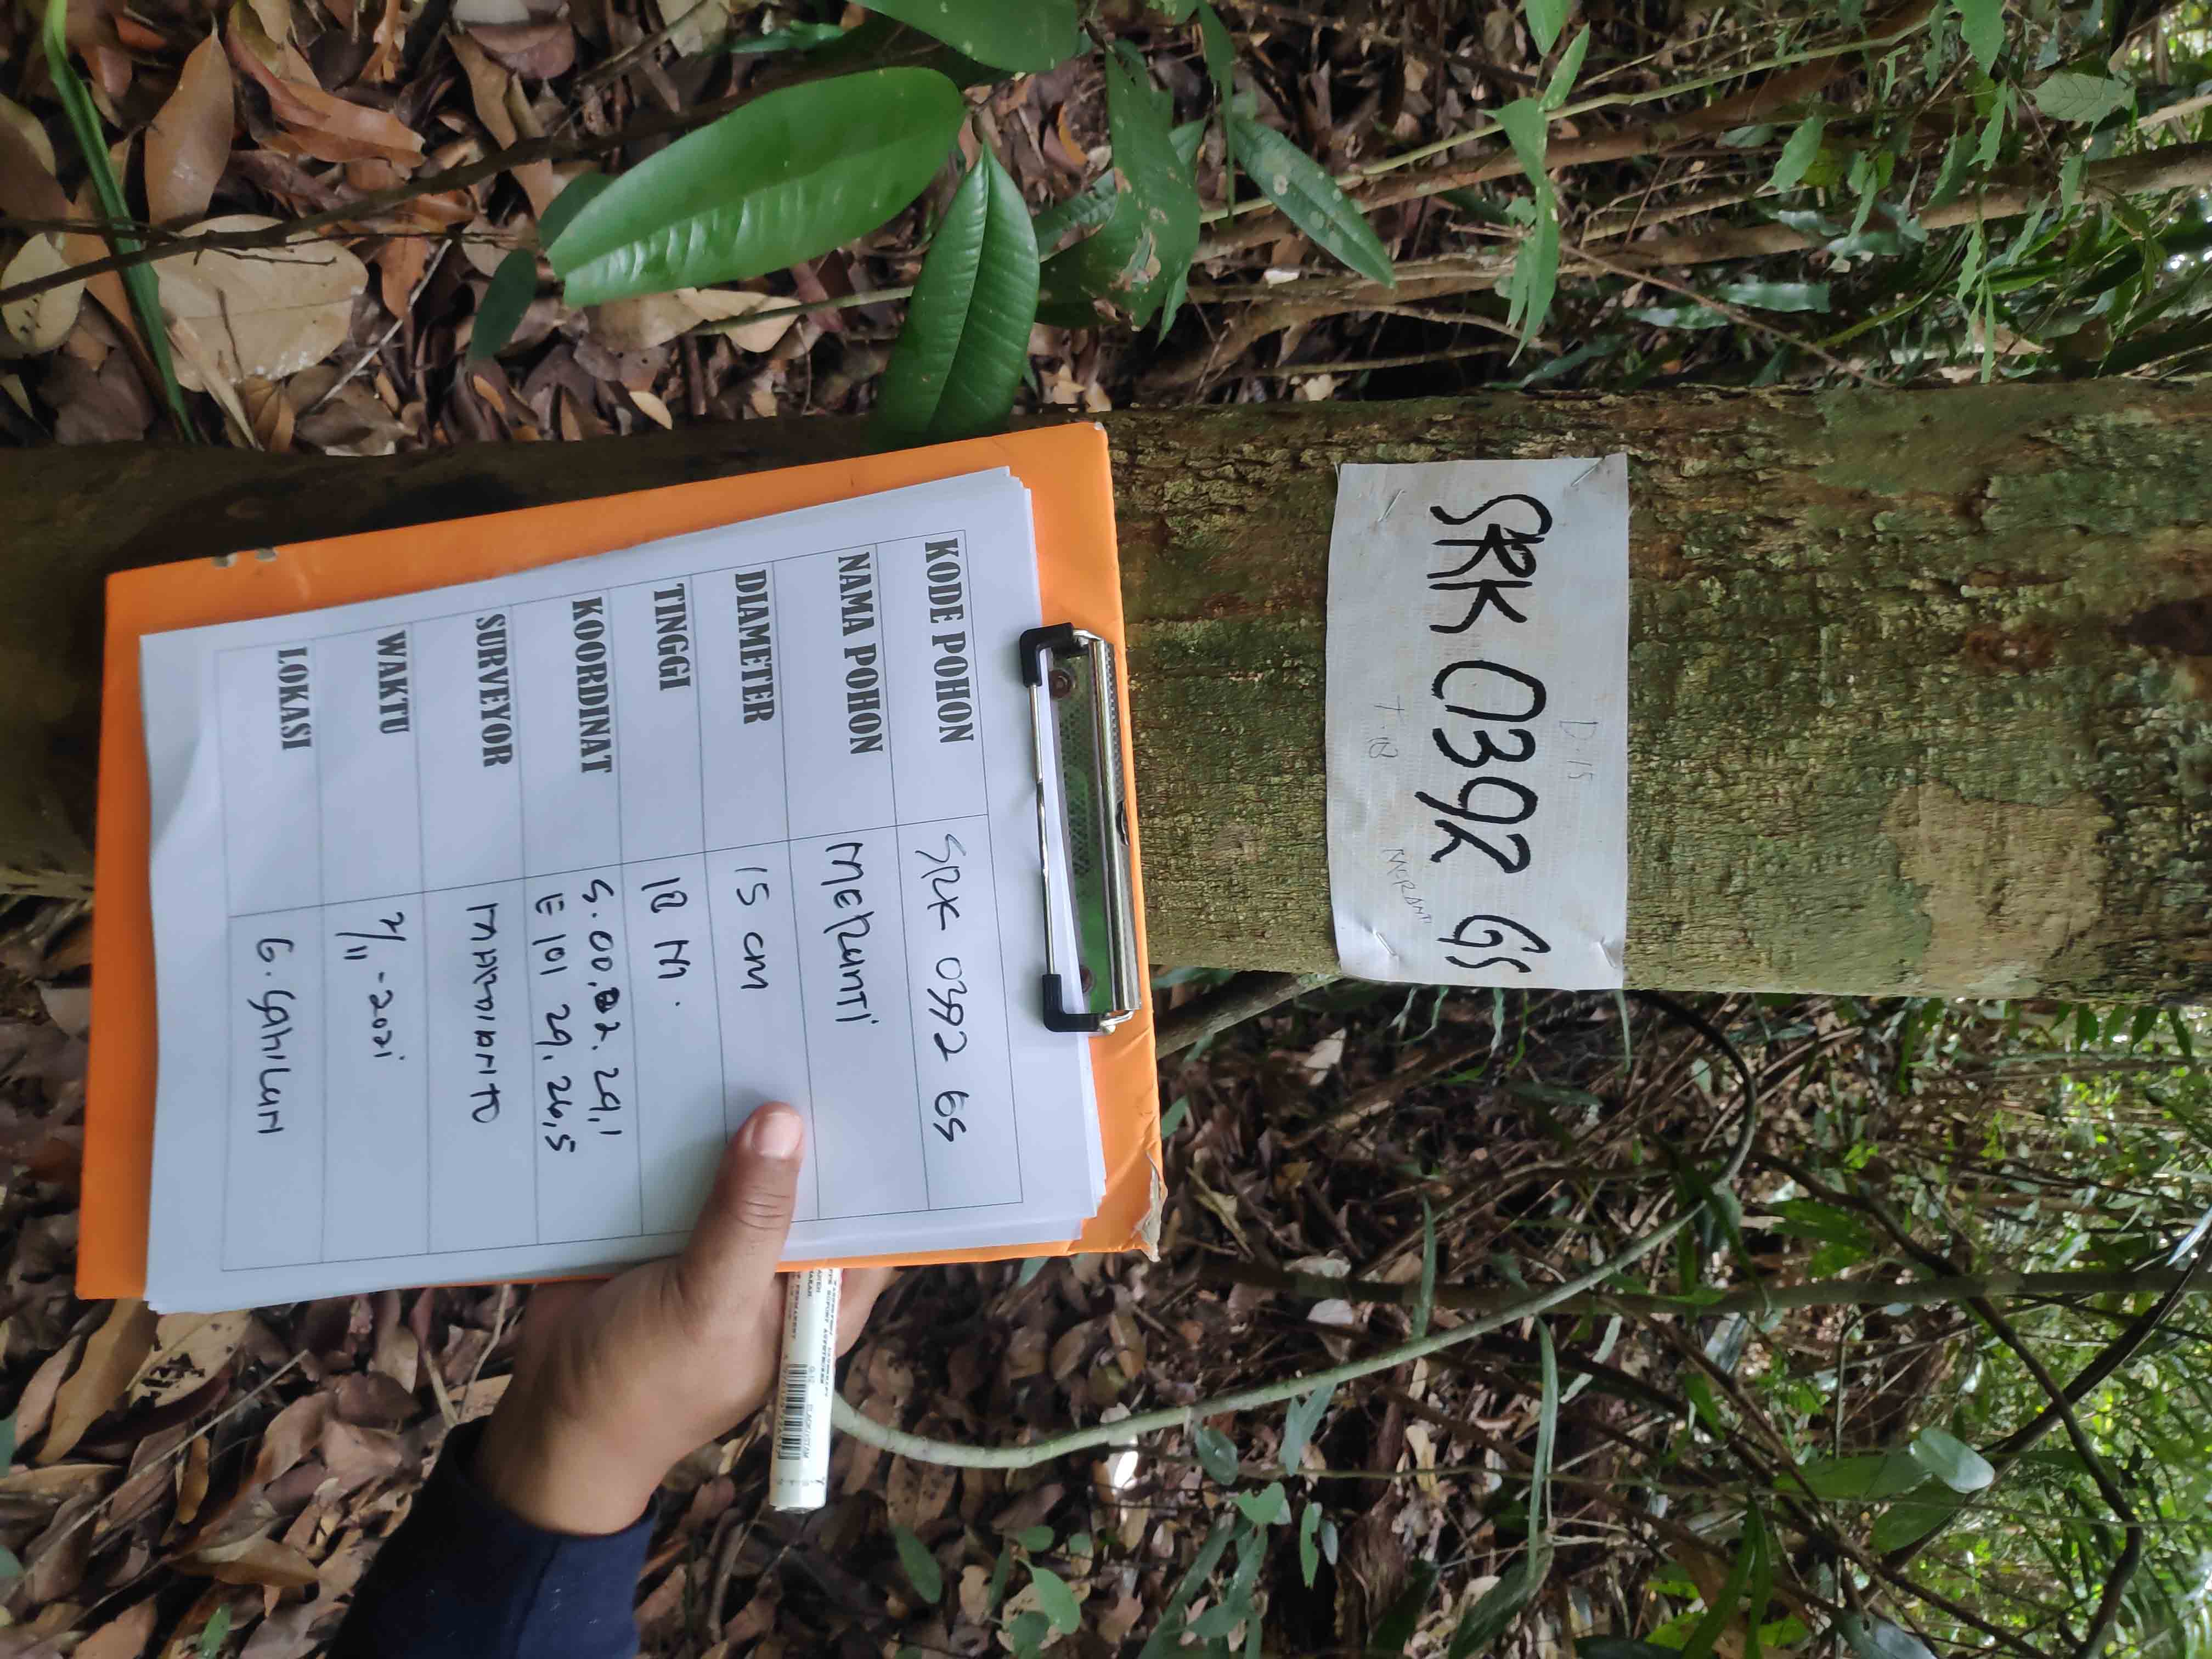 D-15
SRK 0392 GS
T-18
MERANTI
KODE POHON SRK 0392 GS
NAMA POHON MERANTI
DIAMETER 15 cm
TINGGI 18 M.
KOORDINAT S. 00.02. 29,1
E 101 29. 26,5
SURVEYOR MARDIANTO
WAKTU 2/11-2021
LOKASI G. SAHILAN